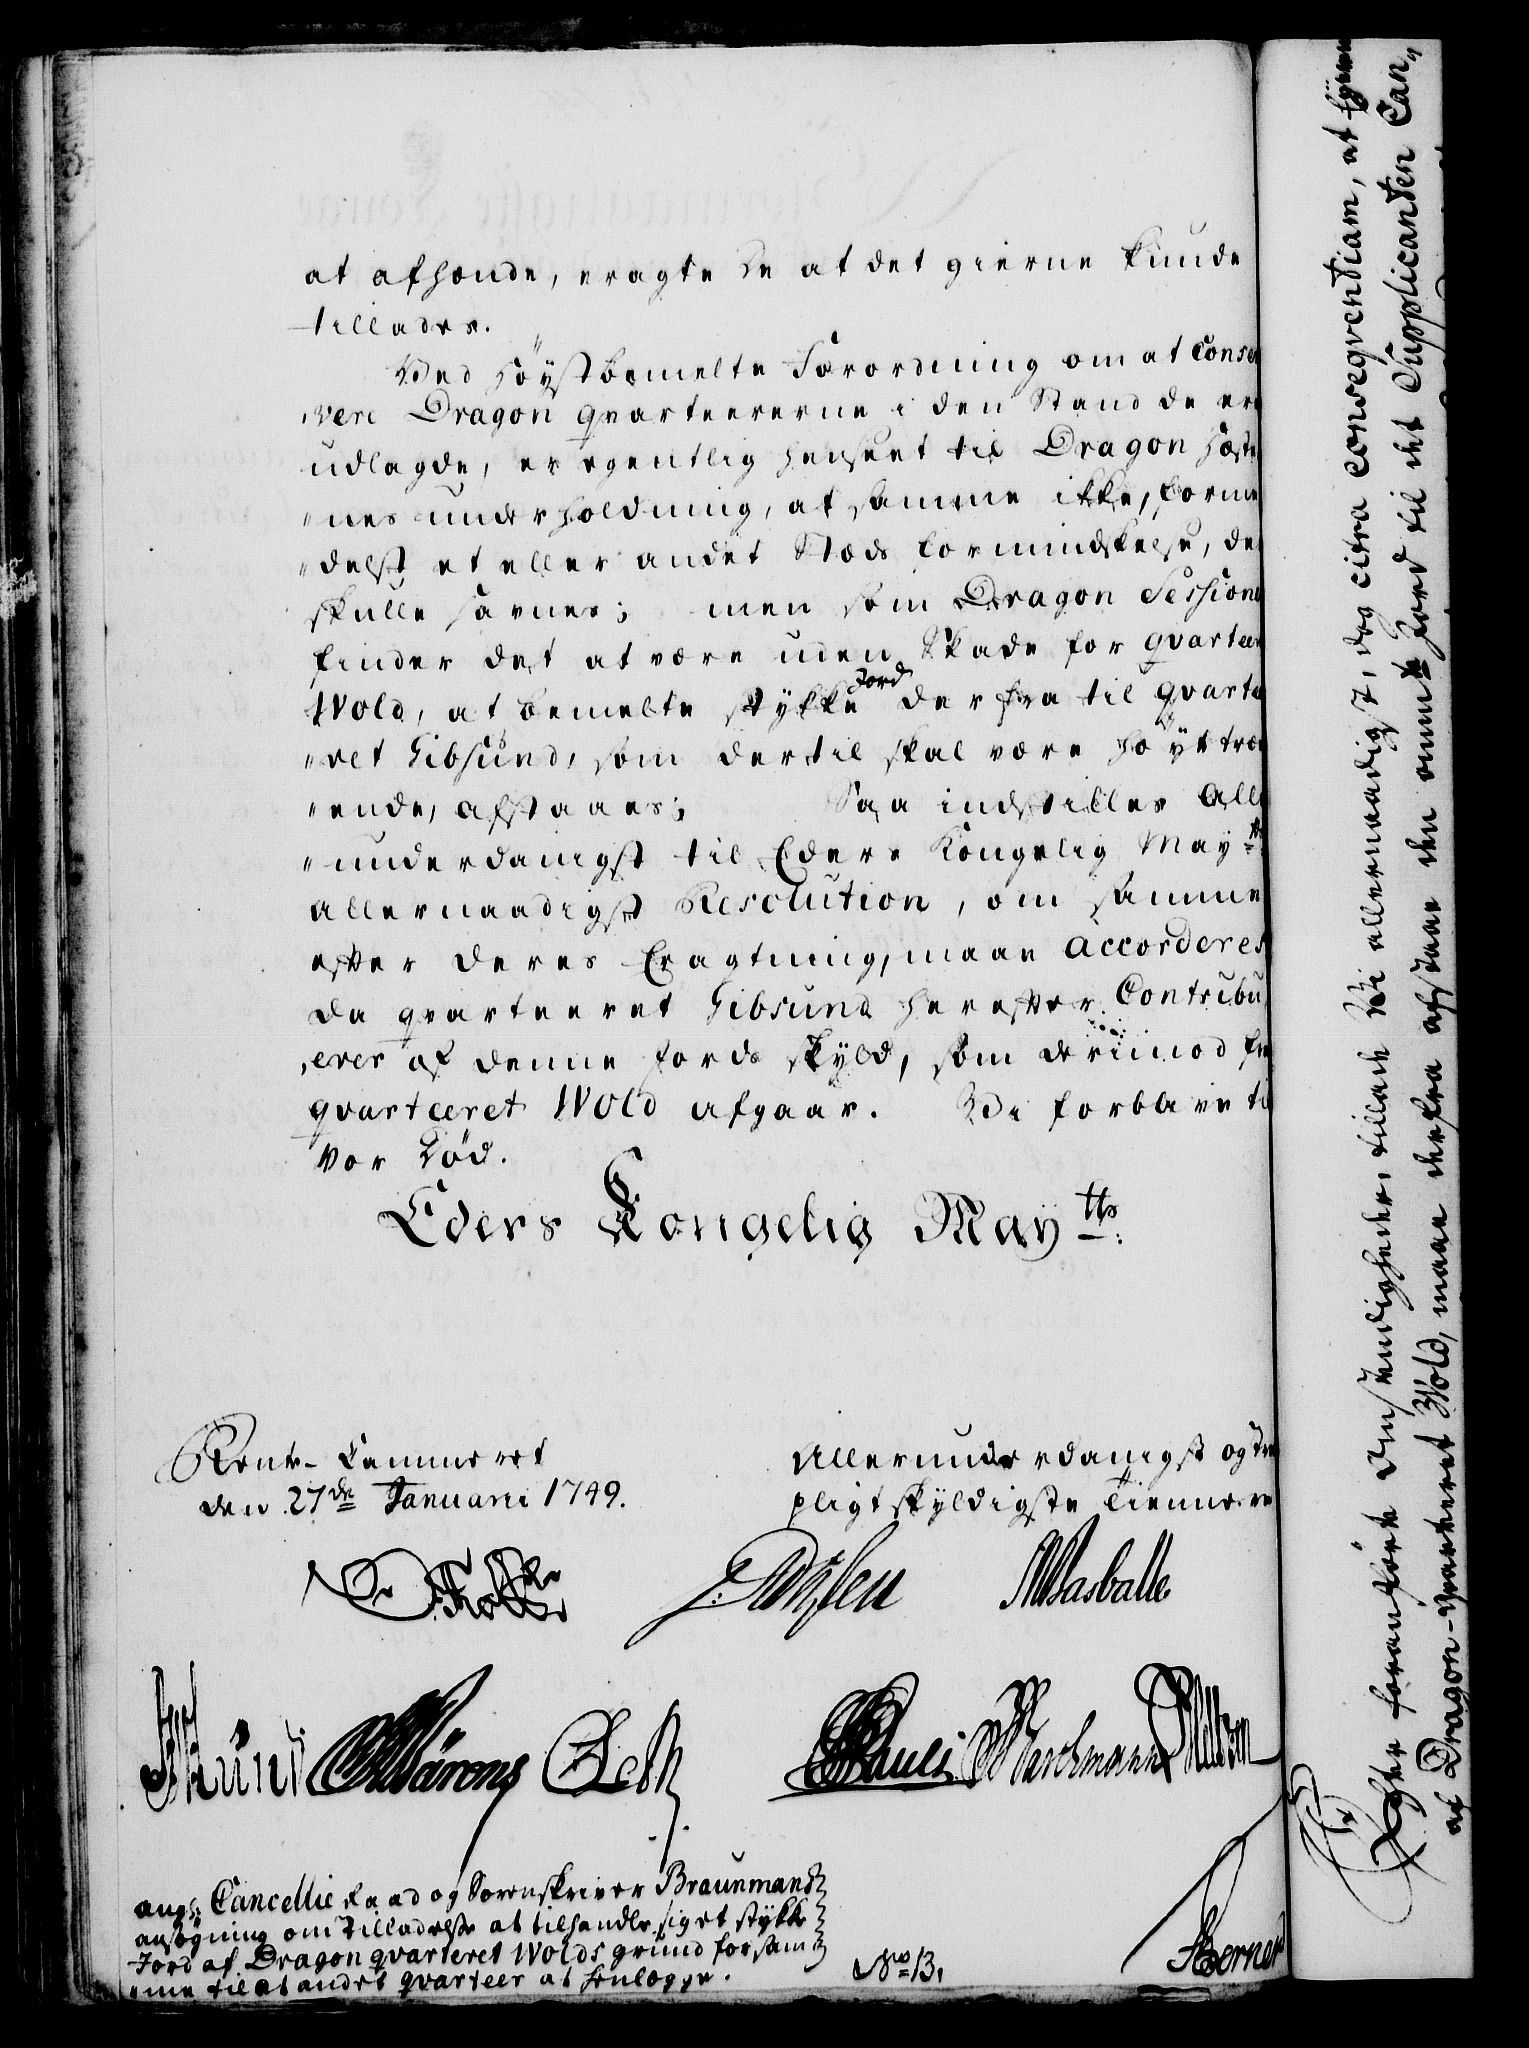 at afhænde, eragte de at det gierne kunde
tillades.
Ved höystbemelte Forordning om at Conser
„vere Dragon qvarteererne i den Stand de ere
udlagde, er egentlig henseet til Dragon Hæste
„nes underholdning, at samme ikke, forme
„delst et eller andet Stæds formindskelse, de
skulle savnes; men som Dragon Sessionen
finder det at være uden Skade for qvarteer
Wold, at bemelte stykke Jord der fra til qvarte
„ret Gibsund, som dertil skal være höyt træn
„ende, afstaaes; Saa indstilles Aller
„underdanigst til Eders Kongelig May.ts
allernaadigst Resolution, om samme
efter deres Eragtning, maae accorderes
da qvarteeret Gibsund herefter Contribu
„erer af denne Jords skyld, som derimod fra
qvarteeret Wold afgaar. Vi forblive til
vor Död.
Eders Kongelig May.tts
Rente-Cammeret
den 27de Januarii 1749.
Allerunderdanigst og Tro
pligtskyldigste Tiennere
Pauli
ang: Cancellie Raad og Sorenskriver Braunmans
ansögning om Tilladelse at tilhandle sig et stykke
Jord af Dragon qvarteret Wolds grund for sam
„me til et andet qvarteer at henlægge.
No 13,
Efter foranförte Omstendigheder, tillade Vi allernaadigst, dog citra conseqventiam, at
af Dragon-qvarteret Wold, maae derfra afstaae den ommte Jord til det Supplicanten Can„